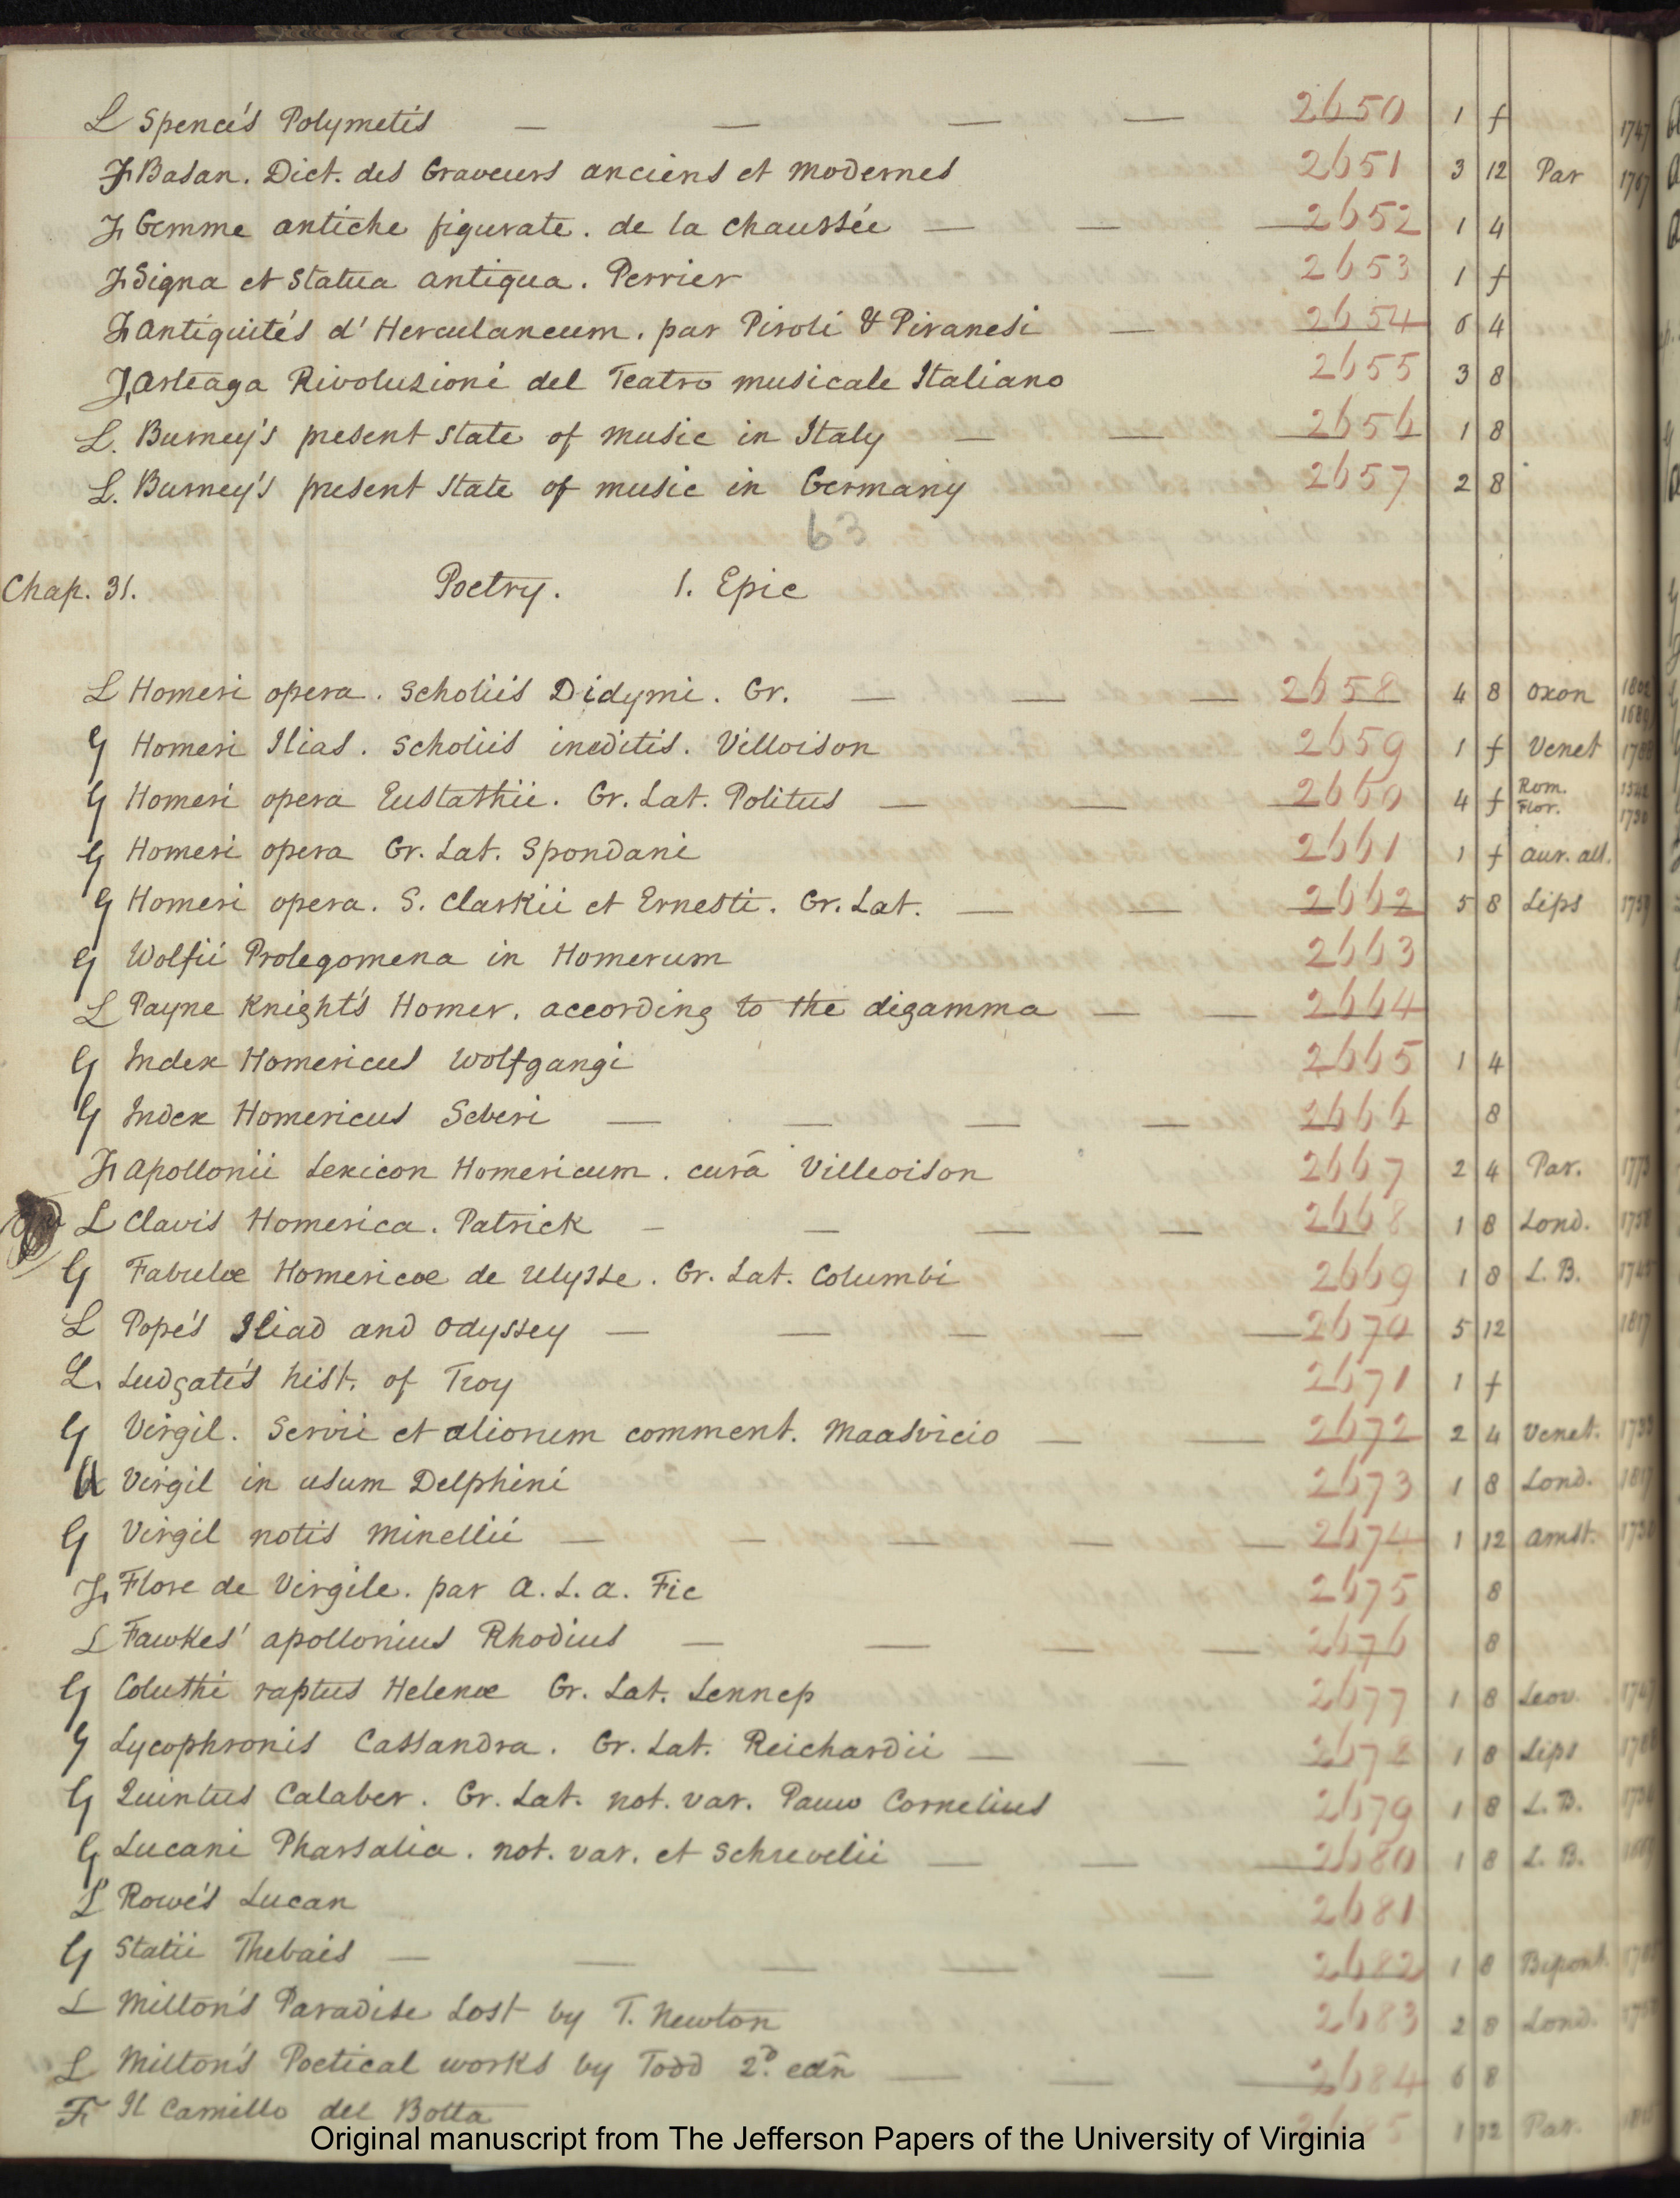 L Spence's Polymetis — — — — 2650 1 f 1747
F Basan. Dict. des Graveurs anciens et modernes 2651 3 12 Par 1767
F Gemme antiche figurate. de la Chaussée — — — 2652 1 4
F Signa et Statua antiqua. Perrier 2653 1 f
F Antiquités d'Herculaneum. par Piroli & Piranesi — — 2654 6 4
F Arteaga Rivoluzioni del Teatro musicale Italiano 2655 3 8
L. Burney's present state of music in Italy — — — 2656 1 8
L. Burney's present state of music in Germany 2657 2 8
63
Chap. 31. Poetry. 1. Epic
L Homeri opera. Scholiis Didymi. Gr. — — — 2658 4 8 Oxon
G Homeri Ilias. Scholiis ineditis. Villoison 2659 1 f Venet 1788
G Homeri opera Eustathii. Gr. Lat. Politus — — — 2660 4 f Rom. Flor. 1730
G Homeri opera Gr. Lat. Spondani 2661 1 f Aur. All.
G Homeri opera. S. Clarkii et Ernesti. Gr. Lat. — — — 2662 5 8 Lips 1759
G Wolfii Prolegomena in Homerum 2663
L Payne Knight's Homer. according to the digamma — — — 2664
G Index Homericus Wolfgangi 2665 1 4
G Index Homericus Seberi — — — — 2666 8
F Apollonii Lexicon Homericum. curâ Villeoison 2667 2 4 Par. 1773
L Clavis Homerica. Patrick — — — — 2668 1 8 Lond. 1758
G Fabulæ Homericæ de Ulysse. Gr. Lat. Columbi 2669 1 8 L. B. 1745
L Pope's Iliad and Odyssey — — — — — 2670 5 12 1817
L. Ludgate's hist. of Troy 2671 1 f
G Virgil. Servii et aliorum comment. Maasvicio — — 2672 2 4 Venet.
Virgil in usum Delphini 2673 1 8 Lond. 1817
G Virgil notis Minellii — — — — — 2674 1 12 Amst.
F Flore de Virgile. par A. L. A. Fic 2675 8
L Fawkes' Apollonius Rhodius — — — — 2676 8
G Coluthi raptus Helenæ Gr. Lat. Lennep 2677 1 8 Leov. 1747
G Lycophronis Cassandra. Gr. Lat. Reichardii — — 2678 1 8 Lips 1788
G Quintus Calaber. Gr. Lat. not. var. Pauw Cornelius 2679 1 8 L. B. 1734
G Lucani Pharsalia. not. var. et Schrevelii — — — 2680 1 8 L. B.
L Rowe's Lucan 2681
G Statii Thebais — — — — — 2682 1 8 Bipont.
L Milton's Paradise Lost by T. Newton 2683 2 8 Lond.
L Milton's Poetical works by Todd 2.d edn̄ — — — 2684 6 8
F Il Camillo del Botta 2685 1 12 Par.
Original manuscript from The Jefferson Papers of the University of Virginia